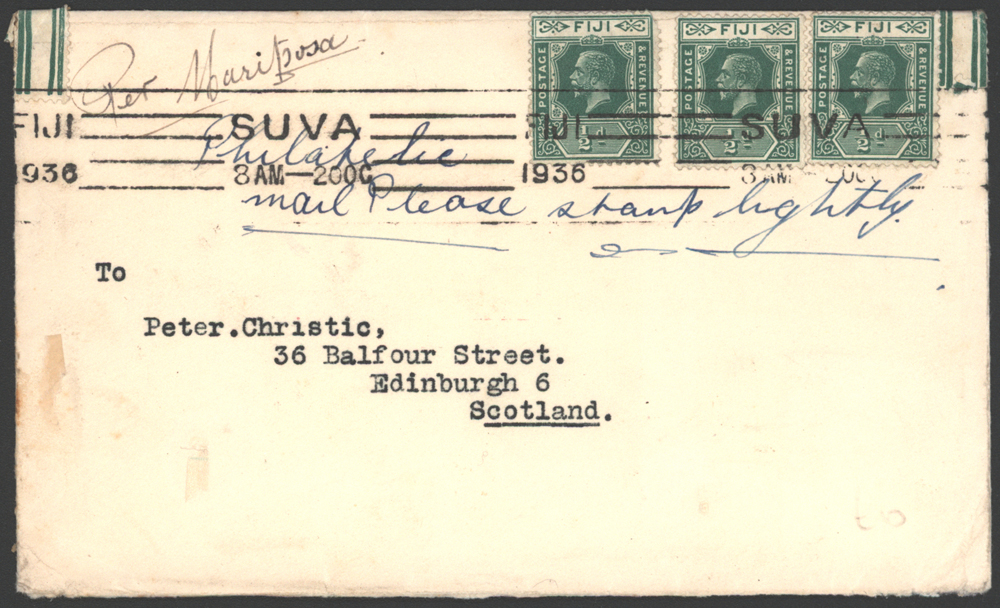 Per Mariposa
FIJI FIJI FIJI
POSTAGE & REVENUE POSTAGE & REVENUE POSTAGE & REVENUE
½d ½d ½d
FIJI SUVA FIJI SUVA
1936 8 AM—20OC 1936 8 AM—20OC
Philatelic
mail Please stamp lightly.
To
Peter.Christic,
36 Balfour Street.
Edinburgh 6
Scotland.